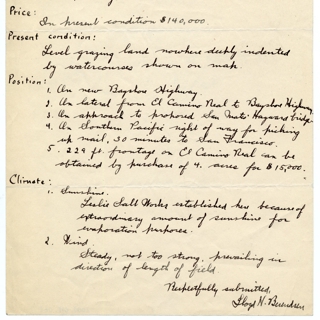 Price:
In present condition $140,000.
Present condition:
Level grazing land nowhere deeply indented
by watercourses shown on map.
Position:
1. On new Bayshore Highway.
2. On lateral from El Camino Real to Bayshore Highway.
3. On approach to proposed San Mateo Hayward bridge.
4. On Southern Pacific right of way for picking
up mail, 30 minutes to San Francisco.
5. 229 ft. frontage on El Camino Real can be
obtained by purchase of 4. acres for $15,000.
Climate:
1. Sunshine.
Leslie Salt Works established here because of
extraordinary amount of sunshine for
evaporation purposes.
2. Wind.
Steady, not too strong, prevailing in
direction of length of field.
Respectfully submitted,
Lloyd H.